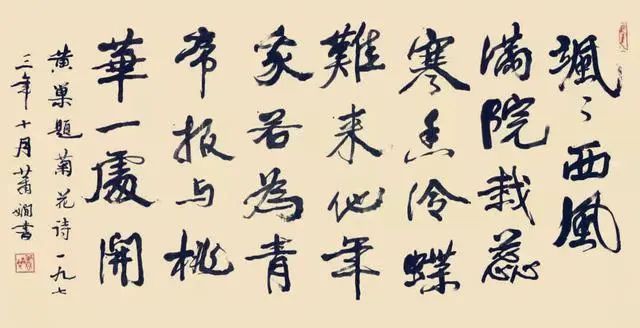 颯〻西風
滿院栽蕊
寒香冷蝶
難来他年
我若為青
帝报与桃
華一處開
黄巢题菊花诗一九七
三年十月萧嫻書